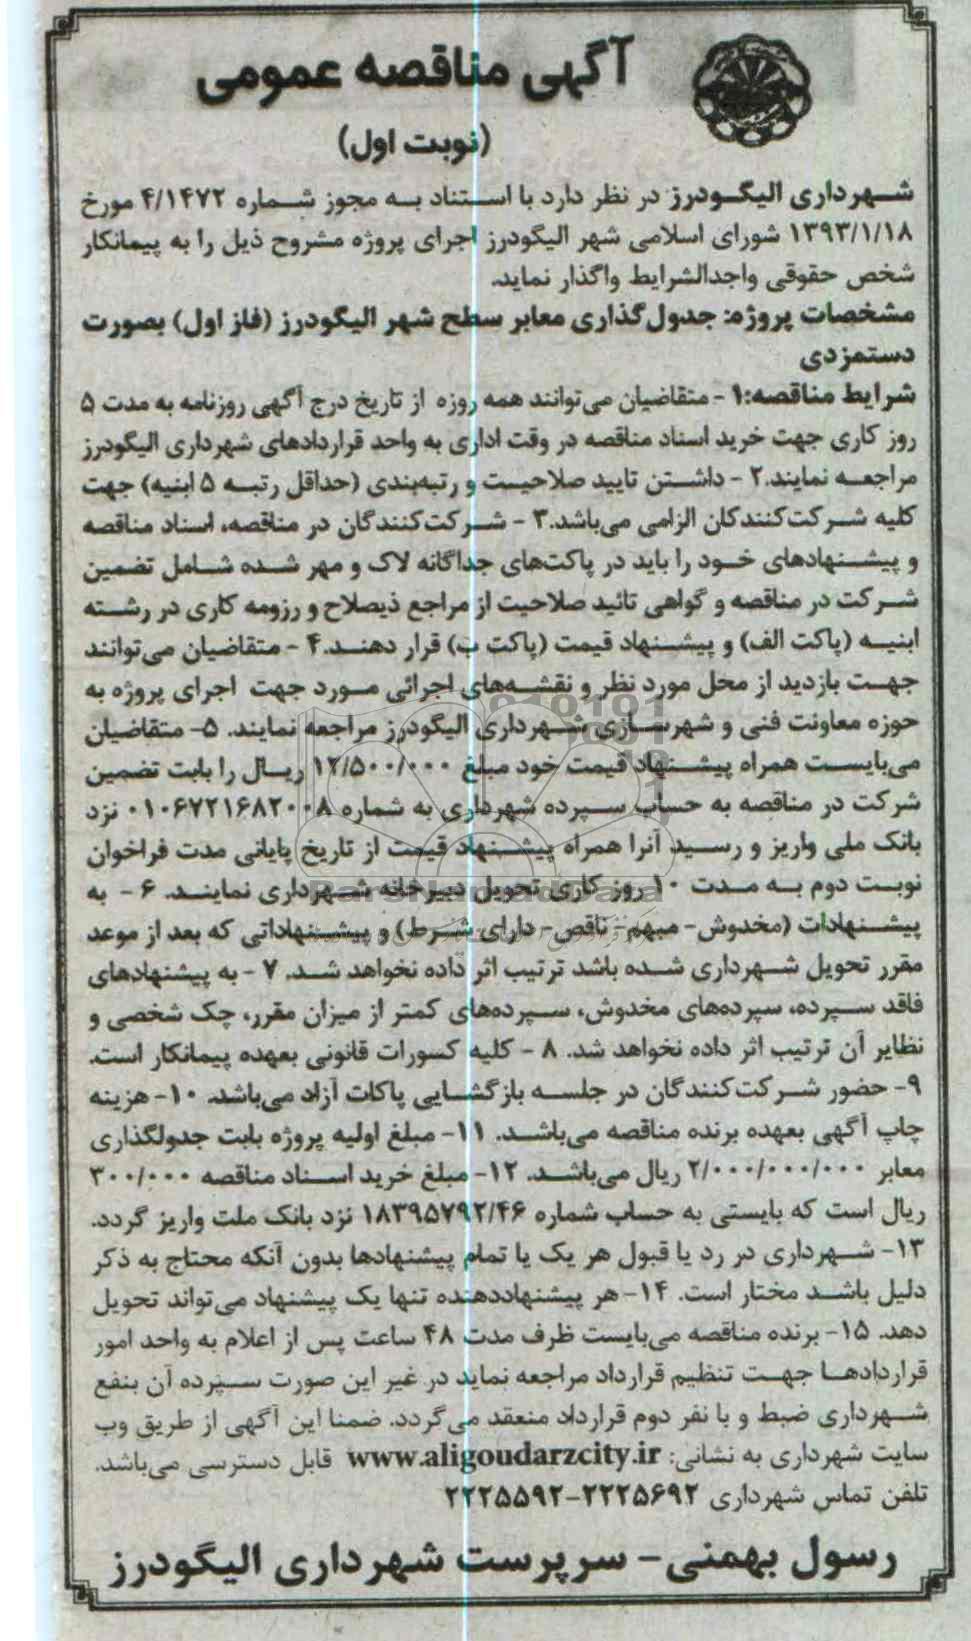 آگهی مناقصه عمومی
(نوبت اول)
شهرداری الیگودرز در نظر دارد با استناد به مجوز شماره ۴/۱۴۷۲ مورخ
۱۳۹۳/۱/۱۸ شورای اسلامی شهر الیگودرز اجرای پروژه مشروح ذیل را به پیمانکار
شخص حقوقی واجدالشرایط واگذار نماید.
مشخصات پروژه: جدول‌گذاری معابر سطح شهر الیگودرز (فاز اول) بصورت
دستمزدی
شرایط مناقصه:۱ - متقاضیان می‌توانند همه روزه از تاریخ درج آگهی روزنامه به مدت ۵
روز کاری جهت خرید اسناد مناقصه در وقت اداری به واحد قراردادهای شهرداری الیگودرز
مراجعه نمایند.۲ - داشتن تایید صلاحیت و رتبه‌بندی (حداقل رتبه ۵ ابنیه) جهت
کلیه شرکت‌کنندکان الزامی می‌باشد.۳ - شرکت‌کنندگان در مناقصه، اسناد مناقصه
و پیشنهادهای خود را باید در پاکت‌های جداگانه لاک و مهر شده شامل تضمین
شرکت در مناقصه و گواهی تائید صلاحیت از مراجع ذیصلاح و رزومه کاری در رشته
ابنیه (پاکت الف) و پیشنهاد قیمت (پاکت ب) قرار دهند.۴ - متقاضیان می‌توانند
جهت بازدید از محل مورد نظر و نقشه‌های اجرائی مورد جهت اجرای پروژه به
حوزه معاونت فنی و شهرسازی شهرداری الیگودرز مراجعه نمایند. ۵- متقاضیان
می‌بایست همراه پیشنهاد قیمت خود مبلغ ۱۲/۵۰۰/۰۰۰ ریال را بابت تضمین
شرکت در مناقصه به حساب سپرده شهرداری به شماره ۰۱۰۶۷۲۱۶۸۲۰۰۸ نزد
بانک ملی واریز و رسید آنرا همراه پیشنهاد قیمت از تاریخ پایانی مدت فراخوان
نوبت دوم به مدت ۱۰ روز کاری تحویل دبیرخانه شهرداری نمایند. ۶ - به
پیشنهادات (مخدوش- مبهم- ناقص- دارای شرط) و پیشنهاداتی که بعد از موعد
مقرر تحویل شهرداری شده باشد ترتیب اثر داده نخواهد شد. ۷ - به پیشنهادهای
فاقد سپرده، سپرده‌های مخدوش، سپرده‌های کمتر از میزان مقرر، چک شخصی و
نظایر آن ترتیب اثر داده نخواهد شد. ۸ - کلیه کسورات قانونی بعهده پیمانکار است.
۹- حضور شرکت‌کنندگان در جلسه بازگشایی پاکات آزاد می‌باشد. ۱۰- هزینه
چاپ آگهی بعهده برنده مناقصه می‌باشد. ۱۱- مبلغ اولیه پروژه بابت جدولگذاری
معابر ۲/۰۰۰/۰۰۰/۰۰۰ ریال می‌باشد. ۱۲- مبلغ خرید اسناد مناقصه ۳۰۰/۰۰۰
ریال است که بایستی به حساب شماره ۱۸۳۹۵۷۹۲/۴۶ نزد بانک ملت واریز گردد.
۱۳- شهرداری در رد یا قبول هر یک یا تمام پیشنهادها بدون آنکه محتاج به ذکر
دلیل باشد مختار است. ۱۴- هر پیشنهاددهنده تنها یک پیشنهاد می‌تواند تحویل
دهد. ۱۵- برنده مناقصه می‌بایست ظرف مدت ۴۸ ساعت پس از اعلام به واحد امور
قراردادها جهت تنظیم قرارداد مراجعه نماید در غیر این صورت سپرده آن بنفع
شهرداری ضبط و با نفر دوم قرارداد منعقد می‌گردد. ضمنا این آگهی از طریق وب
سایت شهرداری به نشانی: www.aligoudarzcity.ir قابل دسترسی می‌باشد.
تلفن تماس شهرداری ۲۲۲۵۶۹۲-۲۲۲۵۵۹۲
رسول بهمنی- سرپرست شهرداری الیگودرز